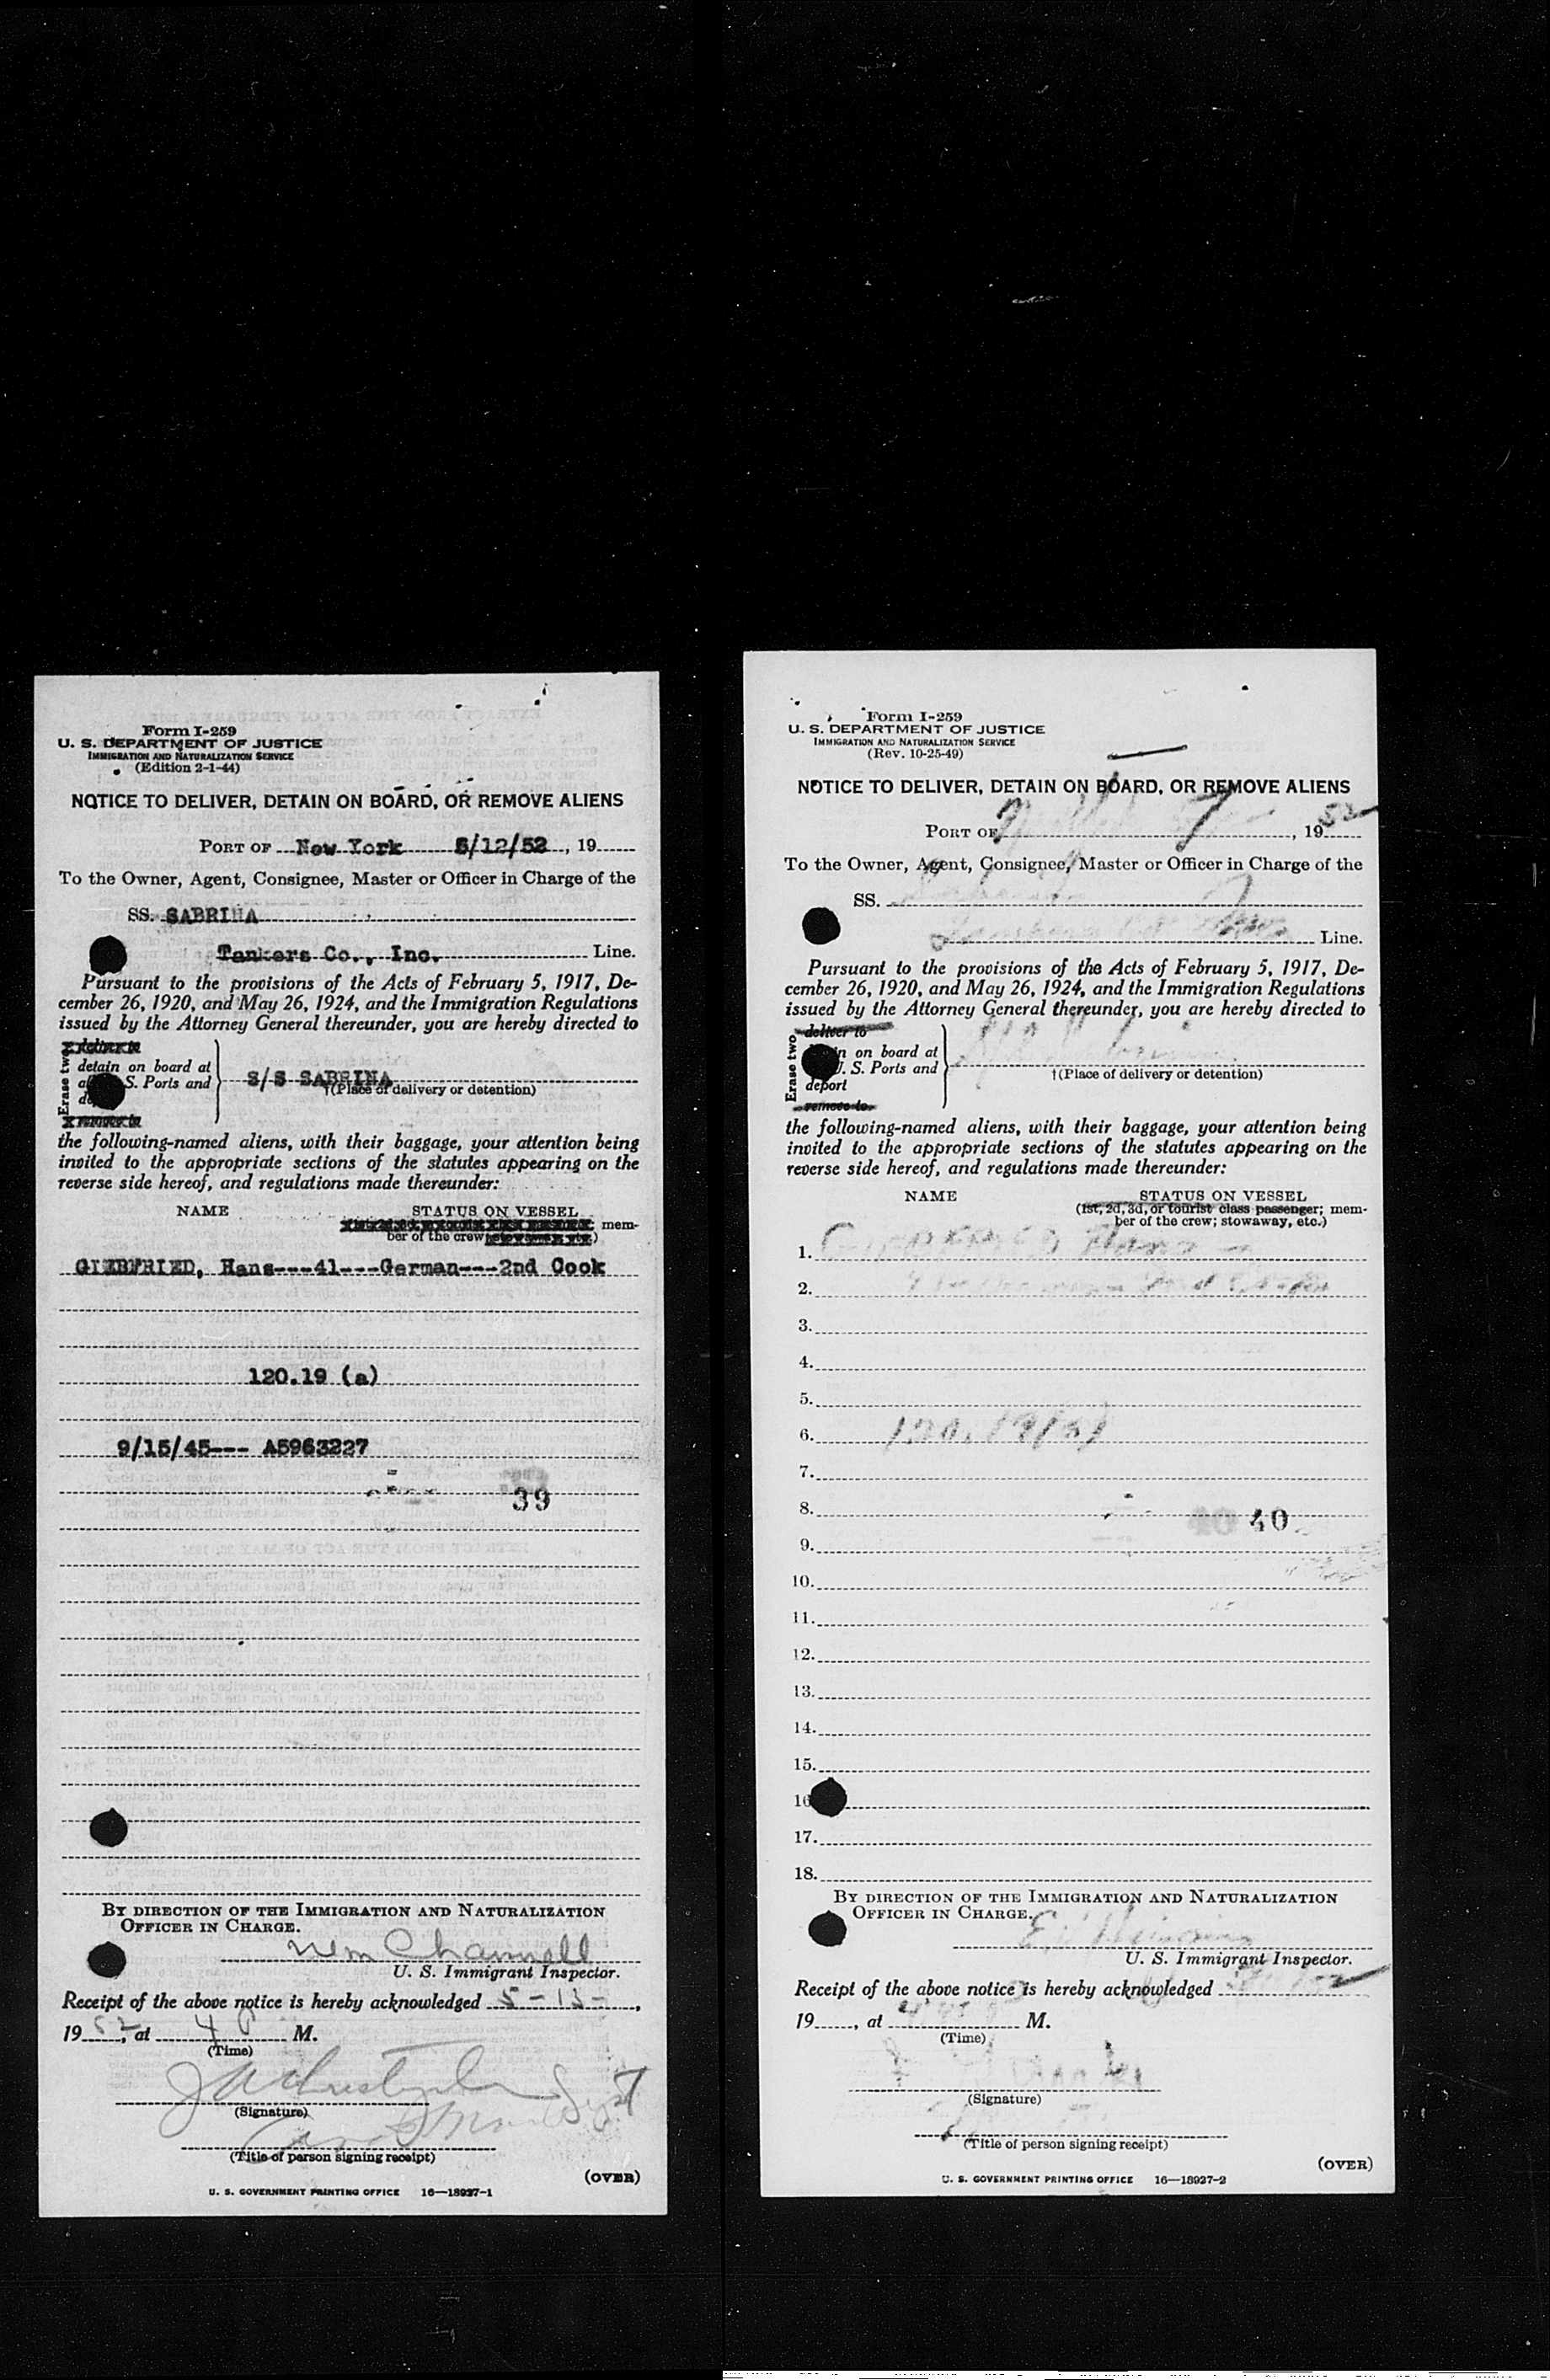 Form I-259
U. S. DEPARTMENT OF JUSTICE
IMMIGRATION AND NATURALIZATION SERVICE
(Edition 2-1-44)
NOTICE TO DELIVER, DETAIN ON BOARD, OR REMOVE ALIENS
PORT OF New York 5/12/52, 19
To the Owner, Agent, Consignee, Master or Officer in Charge of the
SS. SABRINA
Tankers Co., Inc. Line.
Pursuant to the provisions of the Acts of February 5, 1917, De-
cember 26, 1920, and May 26, 1924, and the Immigration Regulations
issued by the Attorney General thereunder, you are hereby directed to
Erase two
detain on board at
S. Ports and
S/S SABRINA
†(Place of delivery or detention)
the following-named aliens, with their baggage, your attention being
invited to the appropriate sections of the statutes appearing on the
reverse side hereof, and regulations made thereunder:
NAME STATUS ON VESSEL
mem-
ber of the crew
GIEBFRIED, Hans---41---German---2nd Cook
120.19 (a)
9/15/45--- A5963227
39
BY DIRECTION OF THE IMMIGRATION AND NATURALIZATION
OFFICER IN CHARGE.
Wm Channell
U. S. Immigrant Inspector.
Receipt of the above notice is hereby acknowledged 5-13-,
1952, at 4 P M.
(Time)
(Signature)
(Title of person signing receipt)
(OVER)
U. S. GOVERNMENT PRINTING OFFICE 16—18927-1
Form I-259
U. S. DEPARTMENT OF JUSTICE
IMMIGRATION AND NATURALIZATION SERVICE
(Rev. 10-25-49)
NOTICE TO DELIVER, DETAIN ON BOARD, OR REMOVE ALIENS
PORT OF , 1952
To the Owner, Agent, Consignee, Master or Officer in Charge of the
SS.
Line.
Pursuant to the provisions of the Acts of February 5, 1917, De-
cember 26, 1920, and May 26, 1924, and the Immigration Regulations
issued by the Attorney General thereunder, you are hereby directed to
Erase two
deliver to
on board at
U. S. Ports and
deport
remove to
†(Place of delivery or detention)
the following-named aliens, with their baggage, your attention being
invited to the appropriate sections of the statutes appearing on the
reverse side hereof, and regulations made thereunder:
NAME STATUS ON VESSEL
(1st, 2d, 3d, or tourist class passenger; mem-
ber of the crew; stowaway, etc.)
1. Hans
2.
3.
4.
5.
6. 120.19(a)
7.
8. 40
9.
10.
11.
12.
13.
14.
15.
16
17.
18.
BY DIRECTION OF THE IMMIGRATION AND NATURALIZATION
OFFICER IN CHARGE.
U. S. Immigrant Inspector.
Receipt of the above notice is hereby acknowledged
19, at M.
(Time)
(Signature)
(Title of person signing receipt)
(OVER)
U. S. GOVERNMENT PRINTING OFFICE 16—18927-2